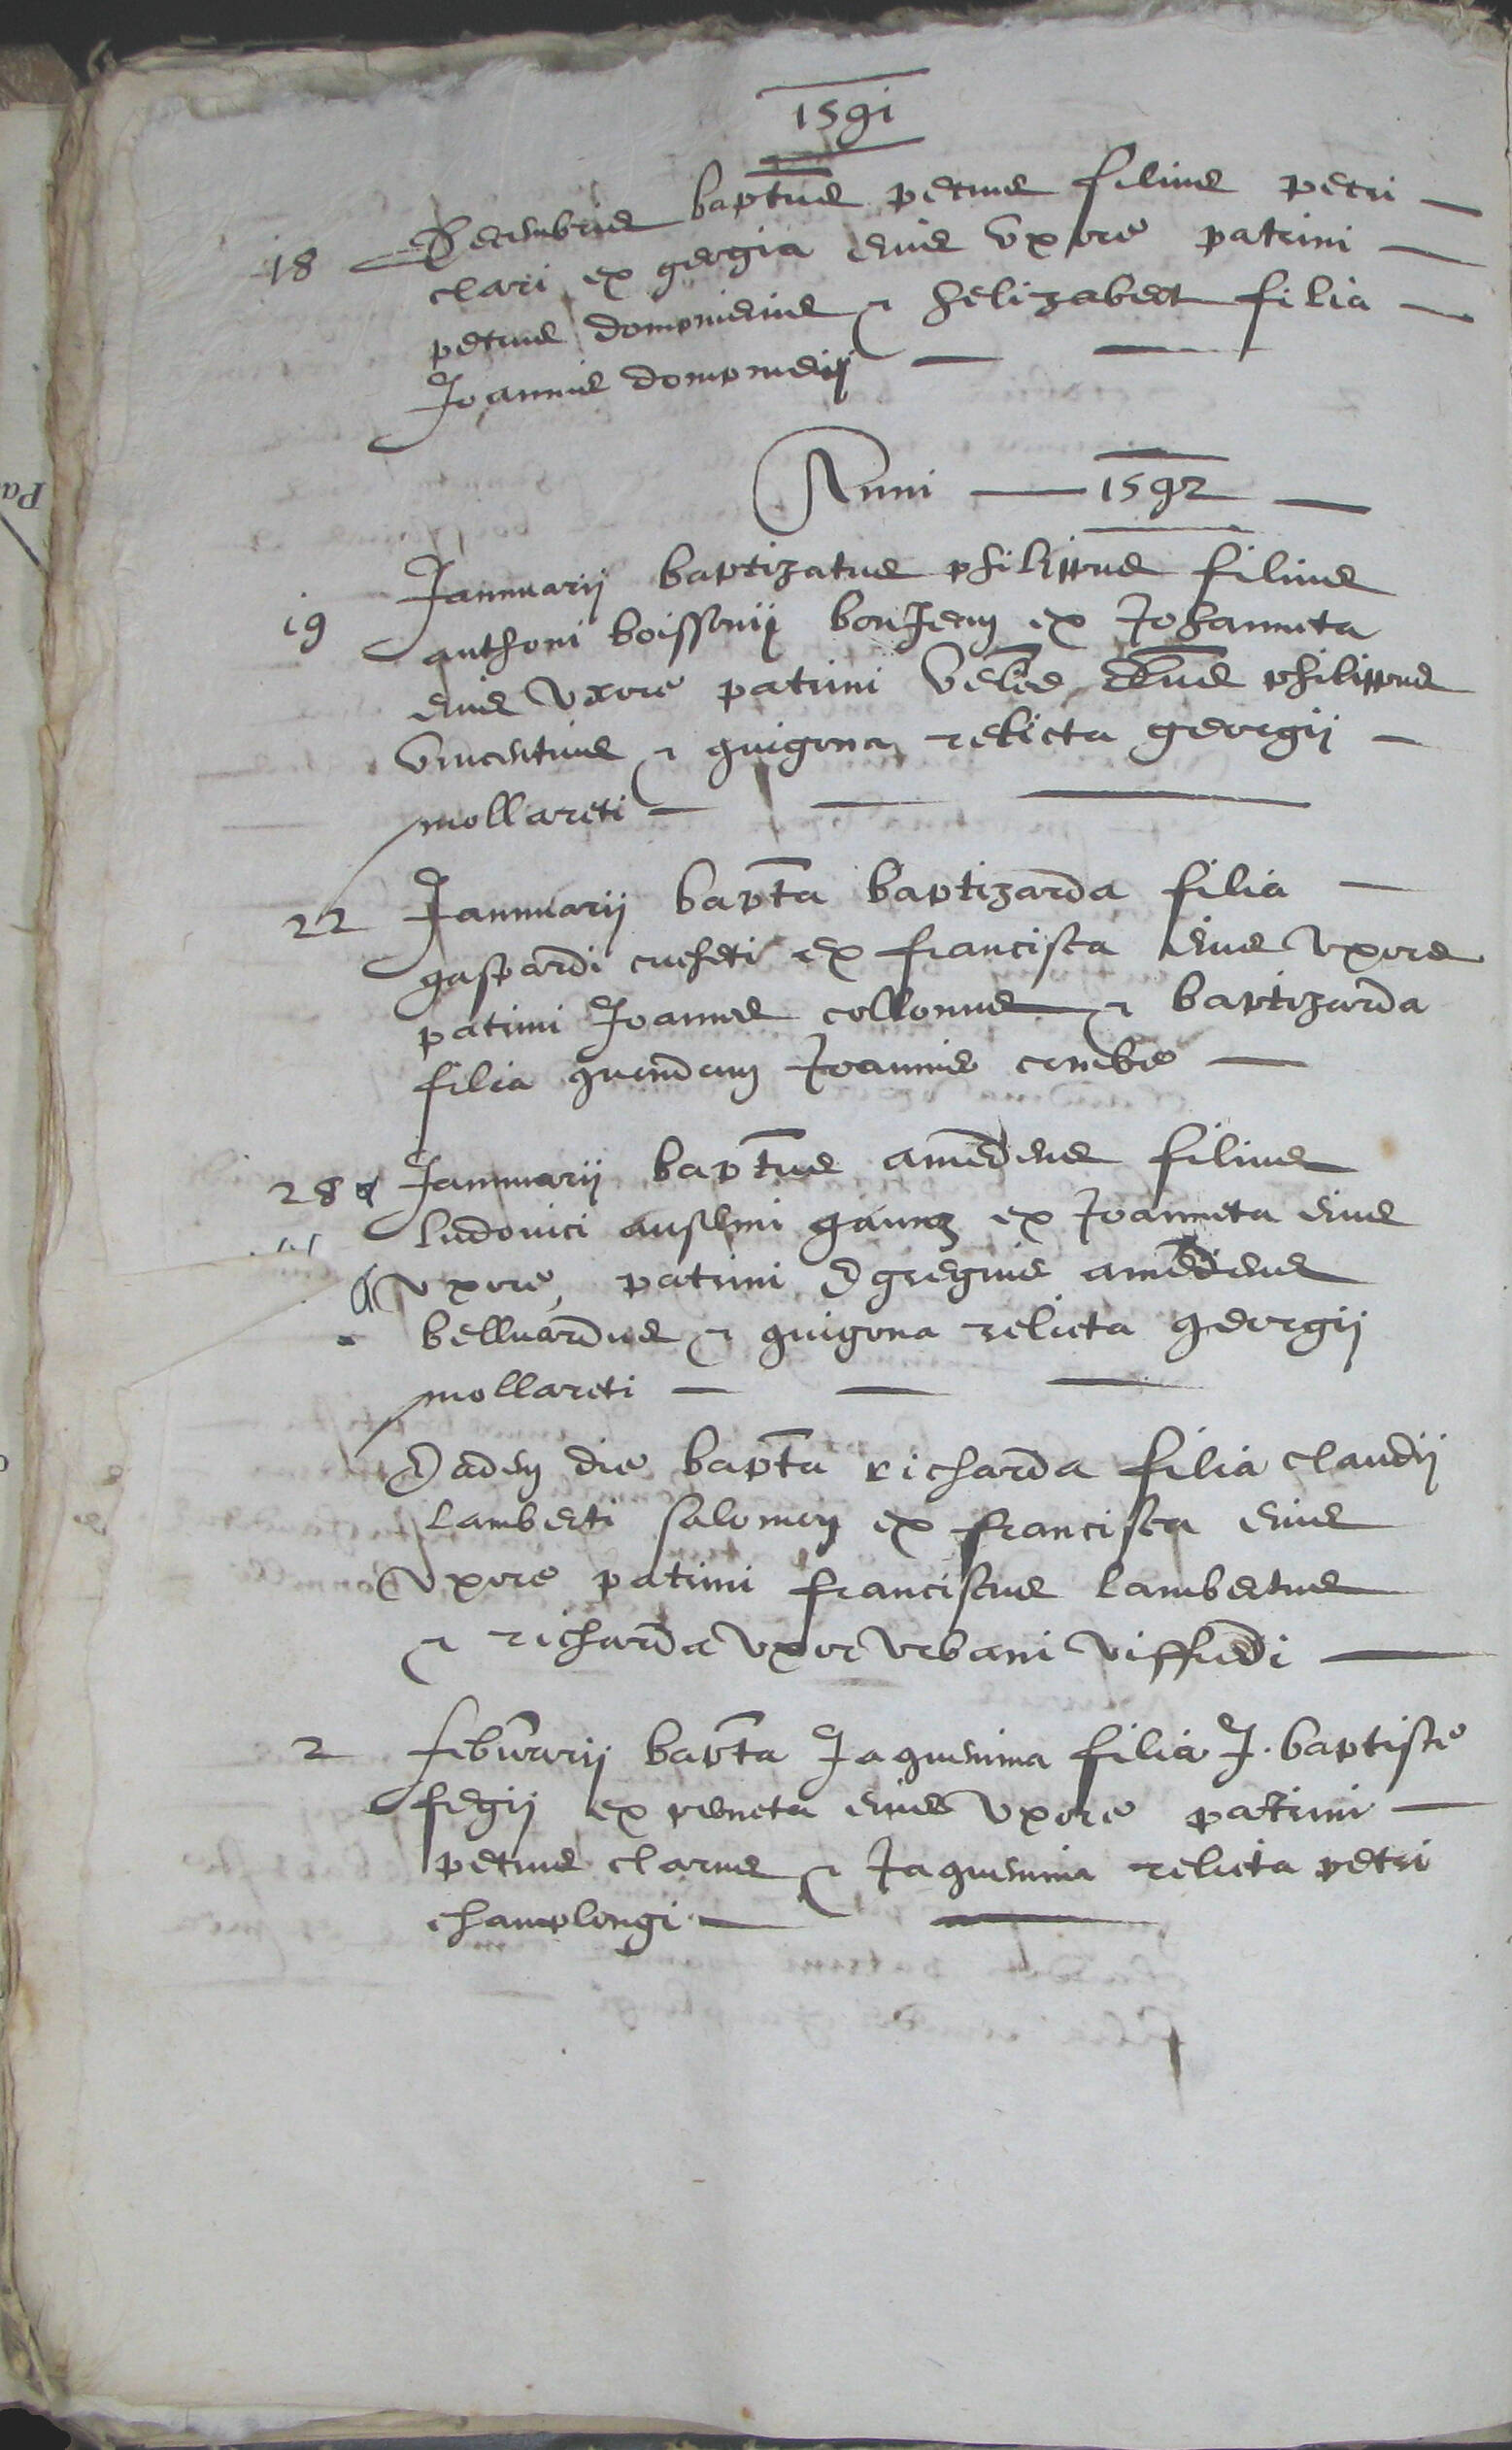 1591
18 Decembris bapt̄us petrus filius petri
clari ex gorgia eius uxore patrini
petrus dompnieius & helizabert filia
Joannis dompnieij
Anni 1592
19 Jannuarij baptizatus philippus filius
anthoni boissonij bonJeny ex Johanneta
eius uxore patrini Vēles philippus
Vincentius & guigona relicta georgij
mollareti
22 Jannuarij bapt̄a baptizarda filia
gaspardi cucheti ex francisca eius uxore
patrini Joannes collonus & baptizarda
filia quondam Joannis combe
28 Jannuarij bapt̄us amedeus filius
ludovici anselmi ex Joanneta eius
uxore, patrini Egregius amedeus
belluardus & guigona relicta georgij
mollareti
Eadem die bapt̄a richarda filia claudij
Lamberti salomon ex francisca eius
uxore patrini franciscus lambertus
& richarda uxor urbani viffredi
2 febr̄uarij bapt̄a Jaquemina filia J. baptiste
fegij ex peroneta eius uxore patrini
petrus clarus & Jaquemina relicta petri
champlongi
Pa